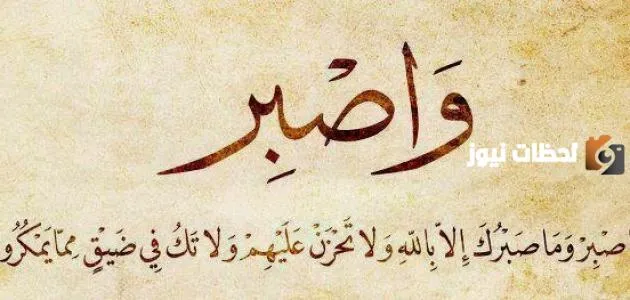 وَاصْبِر
لحظات نيوز
صْبِرْ وَمَا صَبْرُكَ إِلاَّ بِاللّهِ وَلاَ تَحْزَنْ عَلَيْهِمْ وَلاَ تَكُ فِي ضَيْقٍ مِمَّا يَمْكُرُو